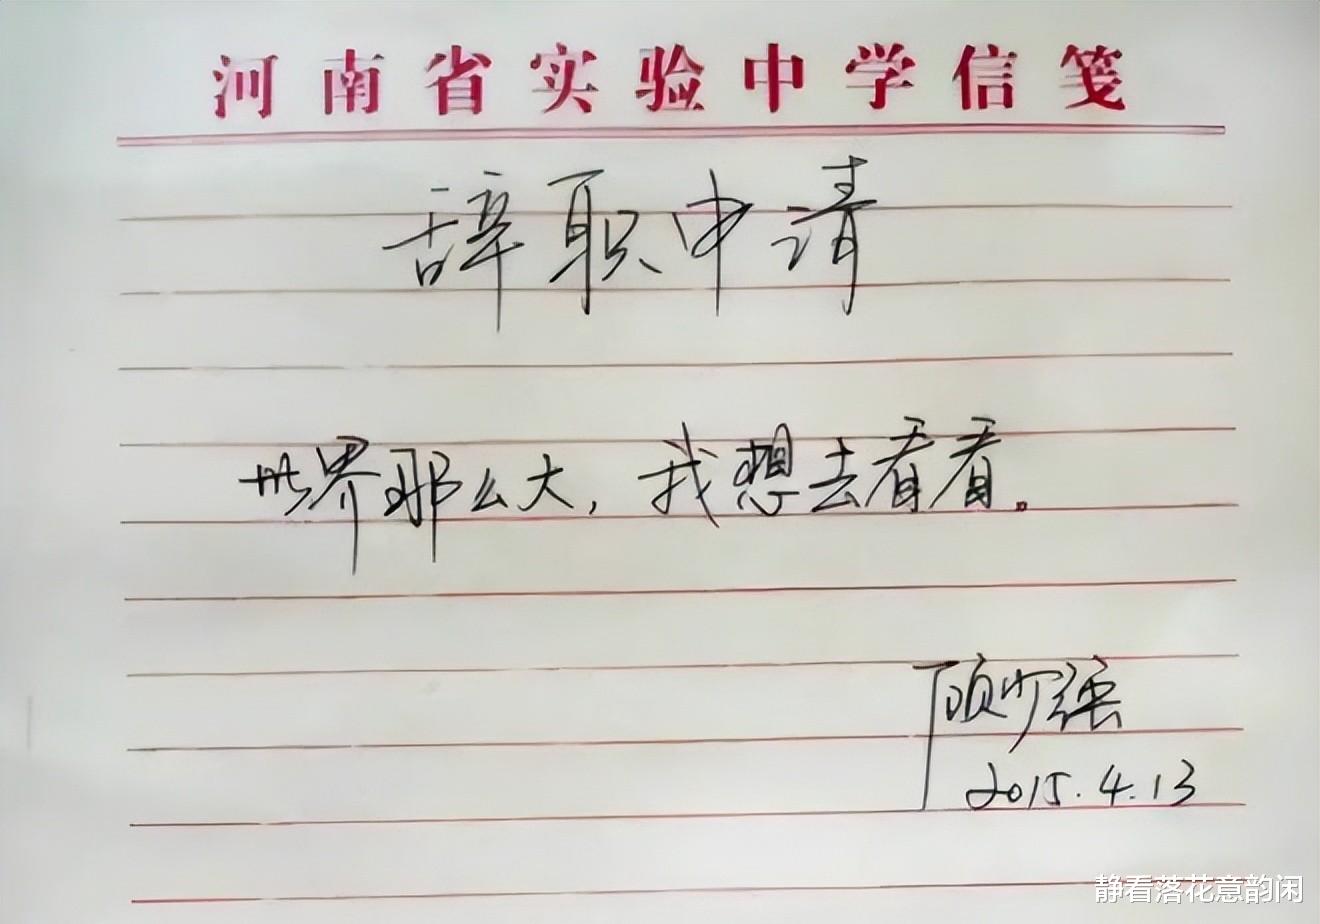 河南省实验中学信笺
辞职申请
世界那么大，我想去看看。
顾少强
2015.4.13
静看落花意韵闲